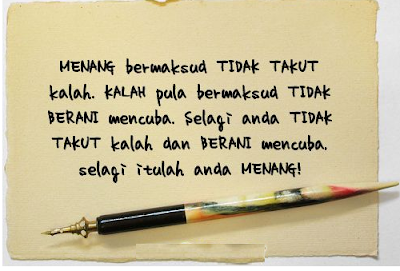 MENANG bermaksud TIDAK TAKUT
kalah. KALAH pula bermaksud TIDAK
BERANI mencuba. Selagi anda TIDAK
TAKUT kalah dan BERANI mencuba.
selagi itulah anda MENANG!